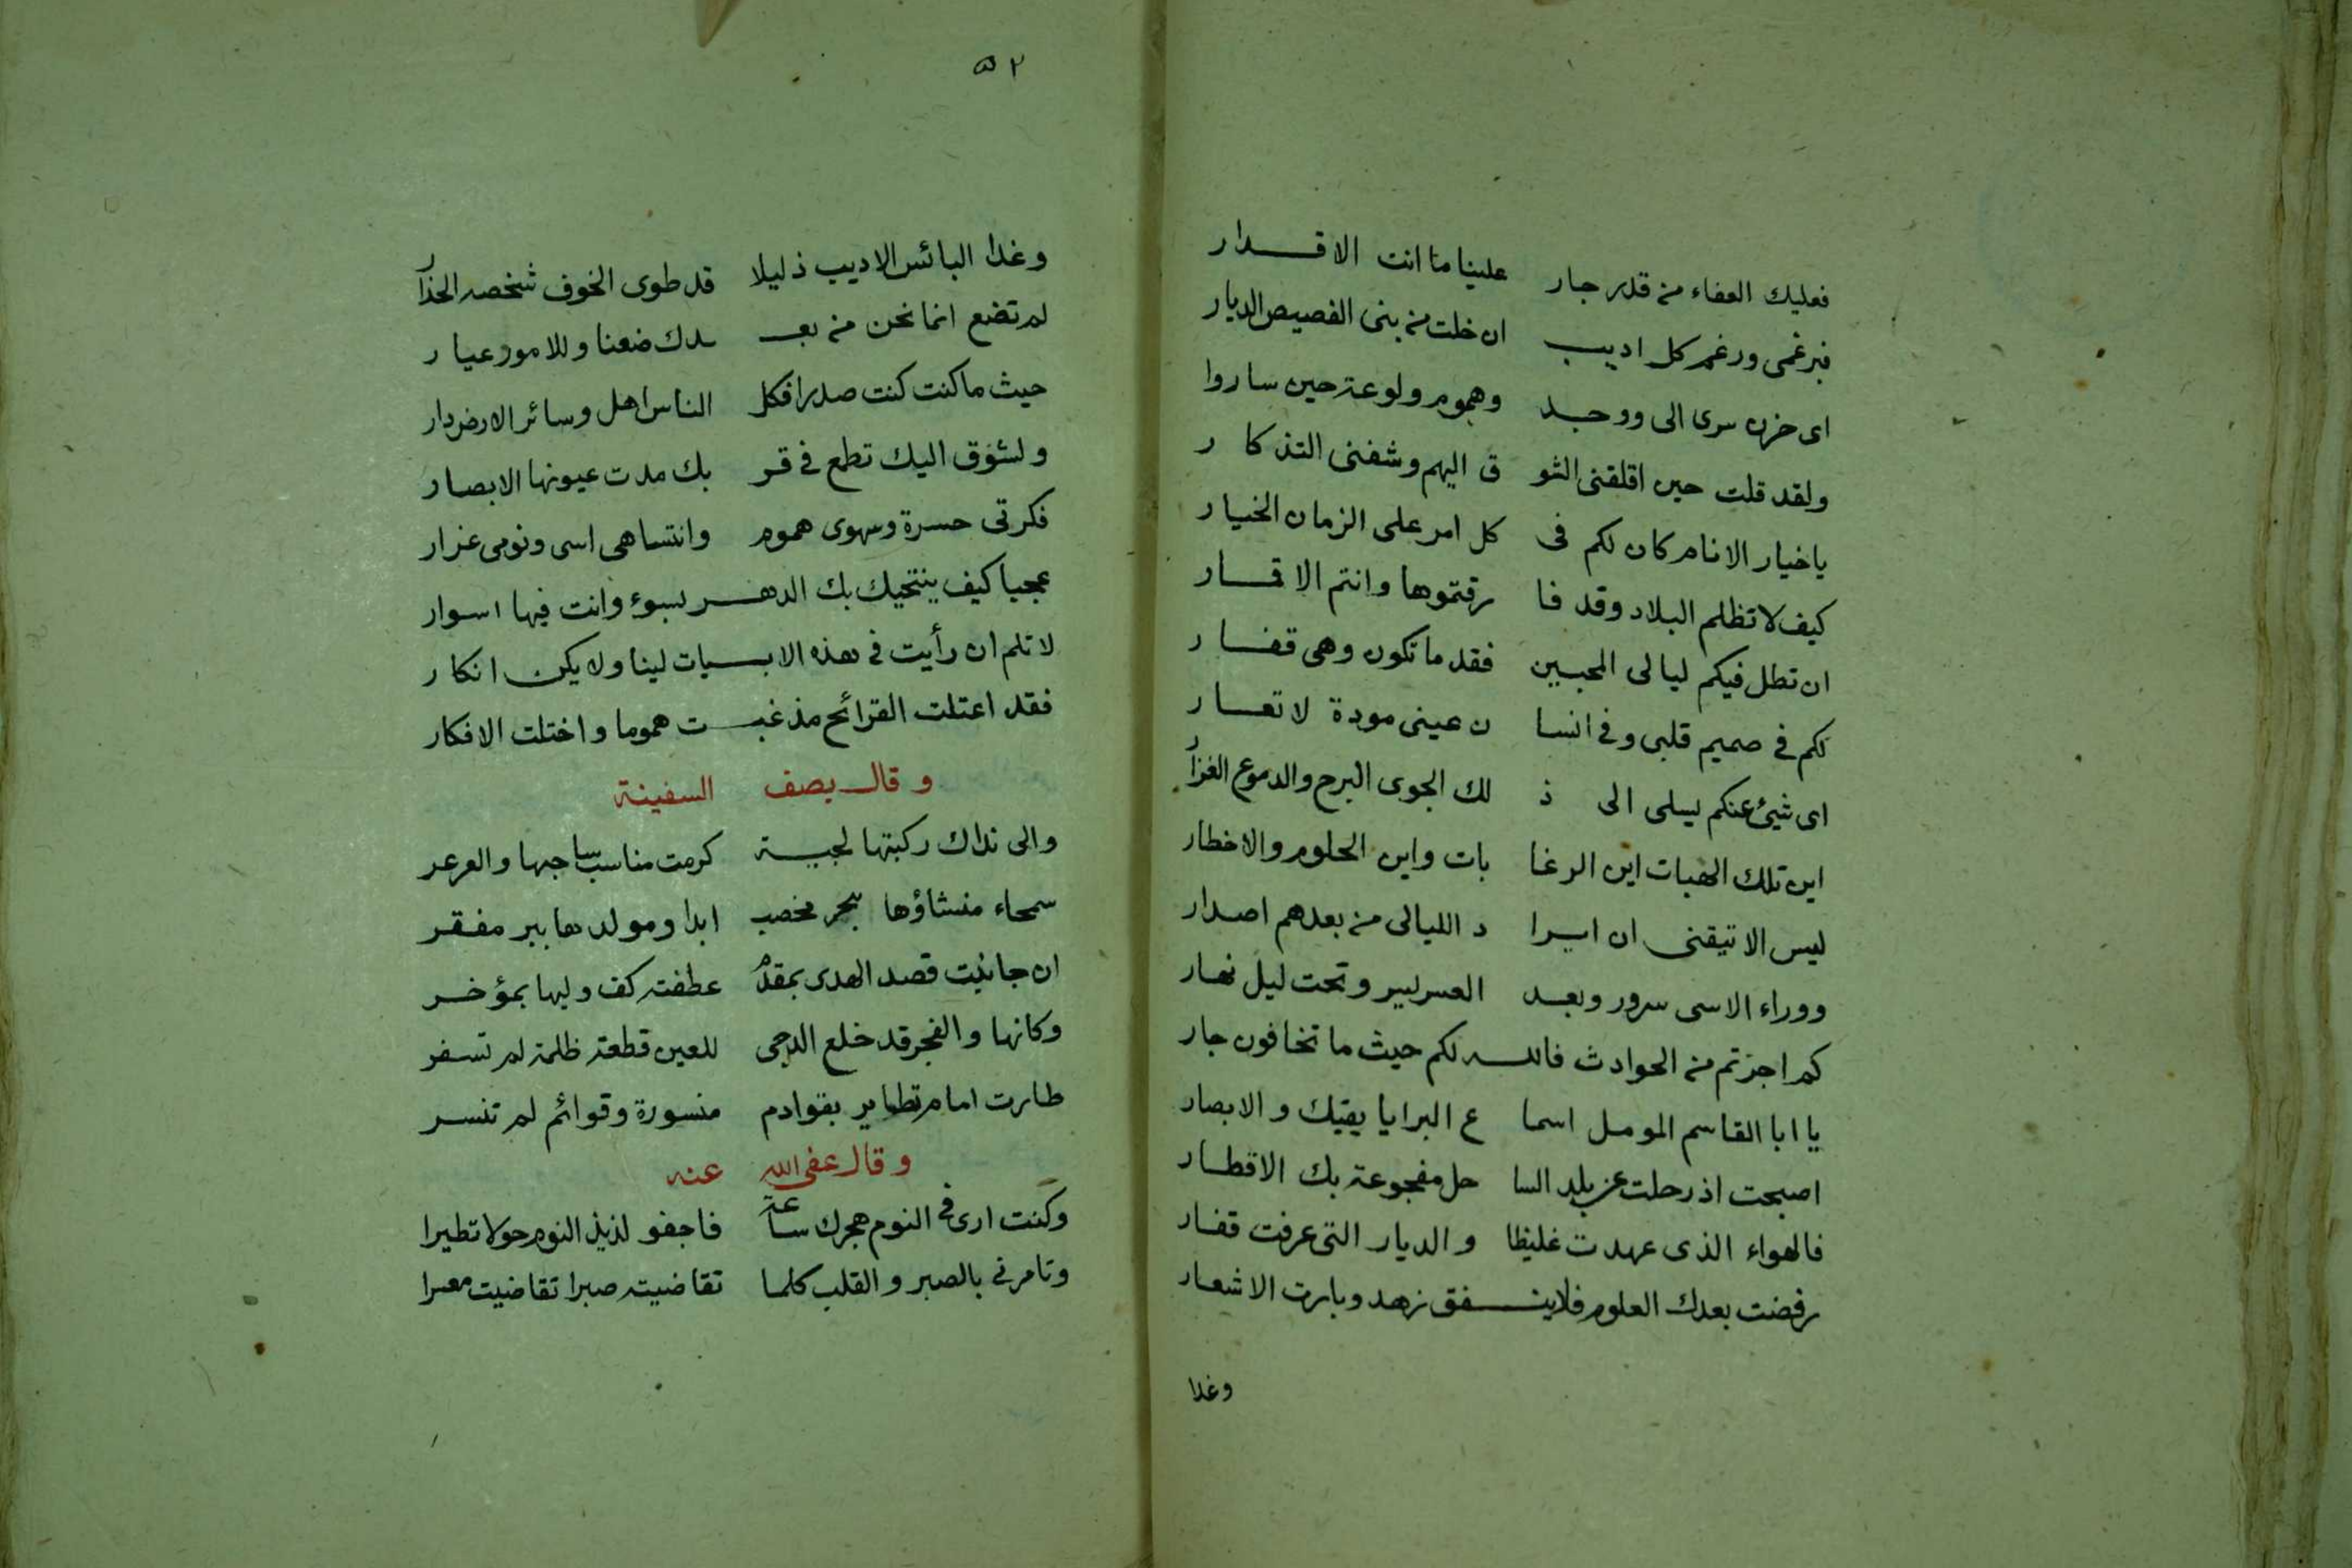 فعليك العفاء من قدر جار علينا ما انت الاقدار
فبرغمى ورغم كل اديب ان خلت من بنى الفصيص الديار
اى حزن سرى الى ووجد وهموم ولوعة حين ساروا
ولقد قلت حين اقلقنى الشو ق اليهم وشفنى التذكار
ياخيار الانام كان لكم فى كل امر على الزمان الخيار
كيف لا تظلم البلاد وقد فا رقتموها وانتم الاقمار
ان تطل فيكم ليالى المحبين فقد ما تكون وهى قصار
لكم فى صميم قلبى وفى انسا ن عينى مودة لا تعار
اى شيئ عنكم يسلى الى ذ لك الجوى البرح والدموع الغزار
اين تلك الهبات اين الرغا بات واين الحلوم والاخطار
ليس الا تيقنى ان ايرا د الليالى من بعدهم اصدار
ووراء الاسى سرور وبعد العسر يسر وتحت ليل نهار
كم اجرتم من الحوادث فالله لكم حيث ما تخافون جار
يا ابا القاسم المومل اسما ع البرايا يقيك والابصار
اصبحت اذ رحلت عن بلد السا حل مفجوعة بك الاقطار
فالهواء الذى عهدت غليظا والديار التى عرفت قفار
رفضت بعدك العلوم فلا ينفق زهد وبارت الاشعار
وغدا
٥٢
وغدا البائس الاديب ذليلا قد طوى الخوف شخصه الحذار
لم تضع انما نحن من بعدك ضعنا وللامور عيار
حيث ما كنت كنت صدرا فكل الناس اهل وسائر الارض دار
ولشوق اليك تطمع فى قر بك مدت عيونها الابصار
فكرتى حسرة وسهوى هموم وانتباهى اسى ونومى غرار
عجبا كيف ينتحيك بك الدهر بسوء وانت فيها اسوار
لا تلم ان رأيت فى هذه الابيات لينا ولا يكن انكار
فقد اعتلت القرائح مذ غبت هموما واختلت الافكار
وقال يصف السفينة
والى نداك ركبتها لجية كرمت مناسب ساجها والعرعر
سمحاء منشاؤها ببحر مخصب ابدا ومولدها ببر مقفر
ان جانبت قصد الهدى بمقدم عطفته كف وليها بمؤخر
وكانها والفجر قد خلع الدجى للعين قطعة ظلمة لم تسفر
طارت امام تطاير بقوادم منسورة وقوائم لم تنسر
وقال عفى الله عنه
وكنت ارى فى النوم هجرك ساعة فاجفو لذيذ النوم حولا تطيرا
وتامرنى بالصبر والقلب كلما تقاضيته صبرا تقاضيت معسرا